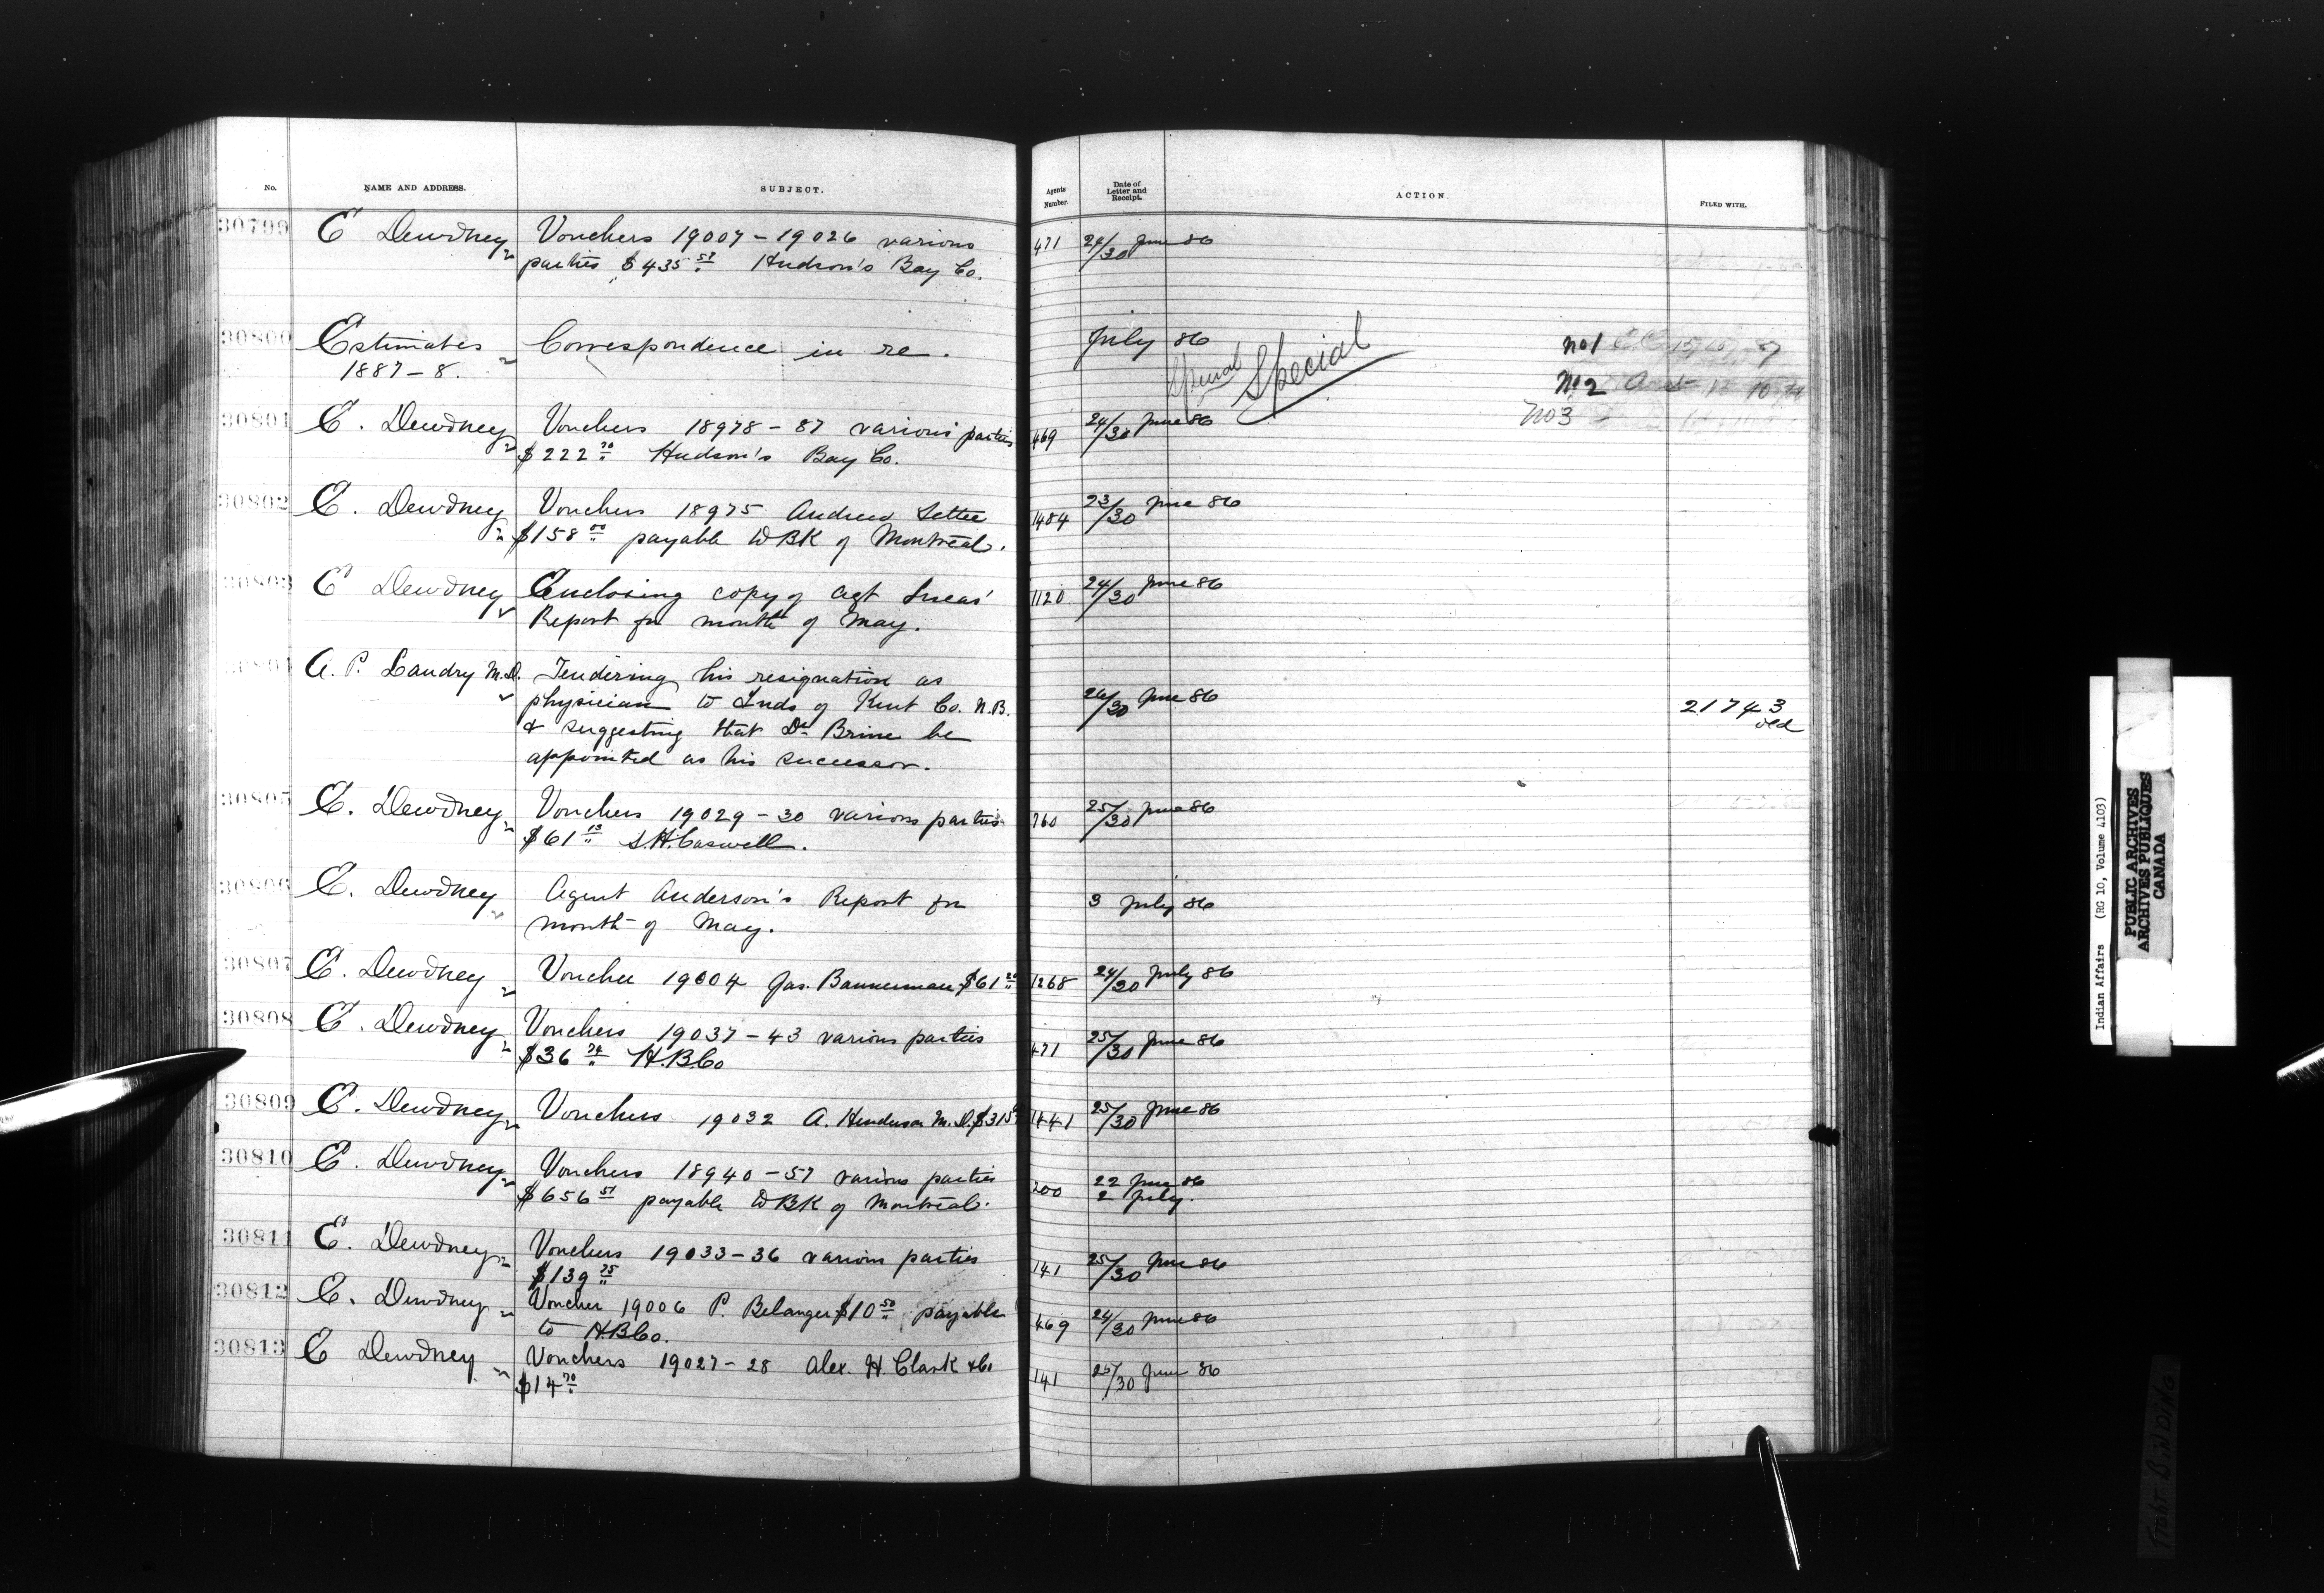 No. NAME AND ADDRESS. SUBJECT. Agents Number. Date of Letter and Receipt. ACTION. FILED WITH.
30799 E Dewdney Vouchers 19007 – 19026 various 471 24/30 June 86
parties $435 57 Hudson's Bay Co.
30800 Estimates Correspondence in re. July 86 Special Special No 1
1887 – 8. No 2
No 3
30801 E. Dewdney Vouchers 18978 – 87 various parties 469 24/30 June 86
$222 70 Hudson's Bay Co.
30802 E. Dewdney Vouchers 18975 Andrew Settee 1484 23/30 June 86
$158 00 payable to BK of Montreal.
30803 E Dewdney Enclosing copy of Agt Lucas' 1120 24/30 June 86
Report for month of May.
30804 A. P. Landry M.D. Tendering his resignation as
physician to Inds of Kent Co. N.B. 26/30 June 86 21743
& suggesting that Dr Brine be old
appointed as his successor.
30805 E. Dewdney Vouchers 19029 – 30 various parties 760 25/30 June 86
$61 13 S.H. Caswell.
30806 E. Dewdney Agent Anderson's Report for 3 July 86
month of May.
30807 E. Dewdney Voucher 19004 Jas. Bannerman $61 1268 24/30 July 86
30808 E. Dewdney Vouchers 19037 – 43 various parties 471 25/30 June 86
$36 74 H.B.Co
30809 E. Dewdney Vouchers 19032 A. Henderson M.D. $315 1441 25/30 June 86
30810 E. Dewdney Vouchers 18940 – 57 various parties 200 22 June 86
$656 51 payable to BK of Montreal. 2 July.
30811 E. Dewdney Vouchers 19033 – 36 various parties 141 25/30 June 86
$139 75
30812 E. Dewdney Voucher 19006 P. Belanger $10 50 payable 469 24/30 June 86
to H.B.Co.
30813 E Dewdney Vouchers 19027 – 28 Alex. H. Clark & Co 141 25/30 June 86
$14 70
Indian Affairs (RG 10, Volume 4103)
PUBLIC ARCHIVES
ARCHIVES PUBLIQUES
CANADA
TIGHT BINDING